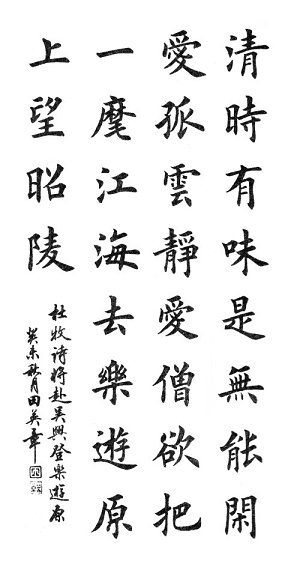 清時有味是無能閑
愛孤雲靜愛僧欲把
一麾江海去樂遊原
上望昭陵
杜牧诗将赴吴興登樂游原
癸未秋月田英章